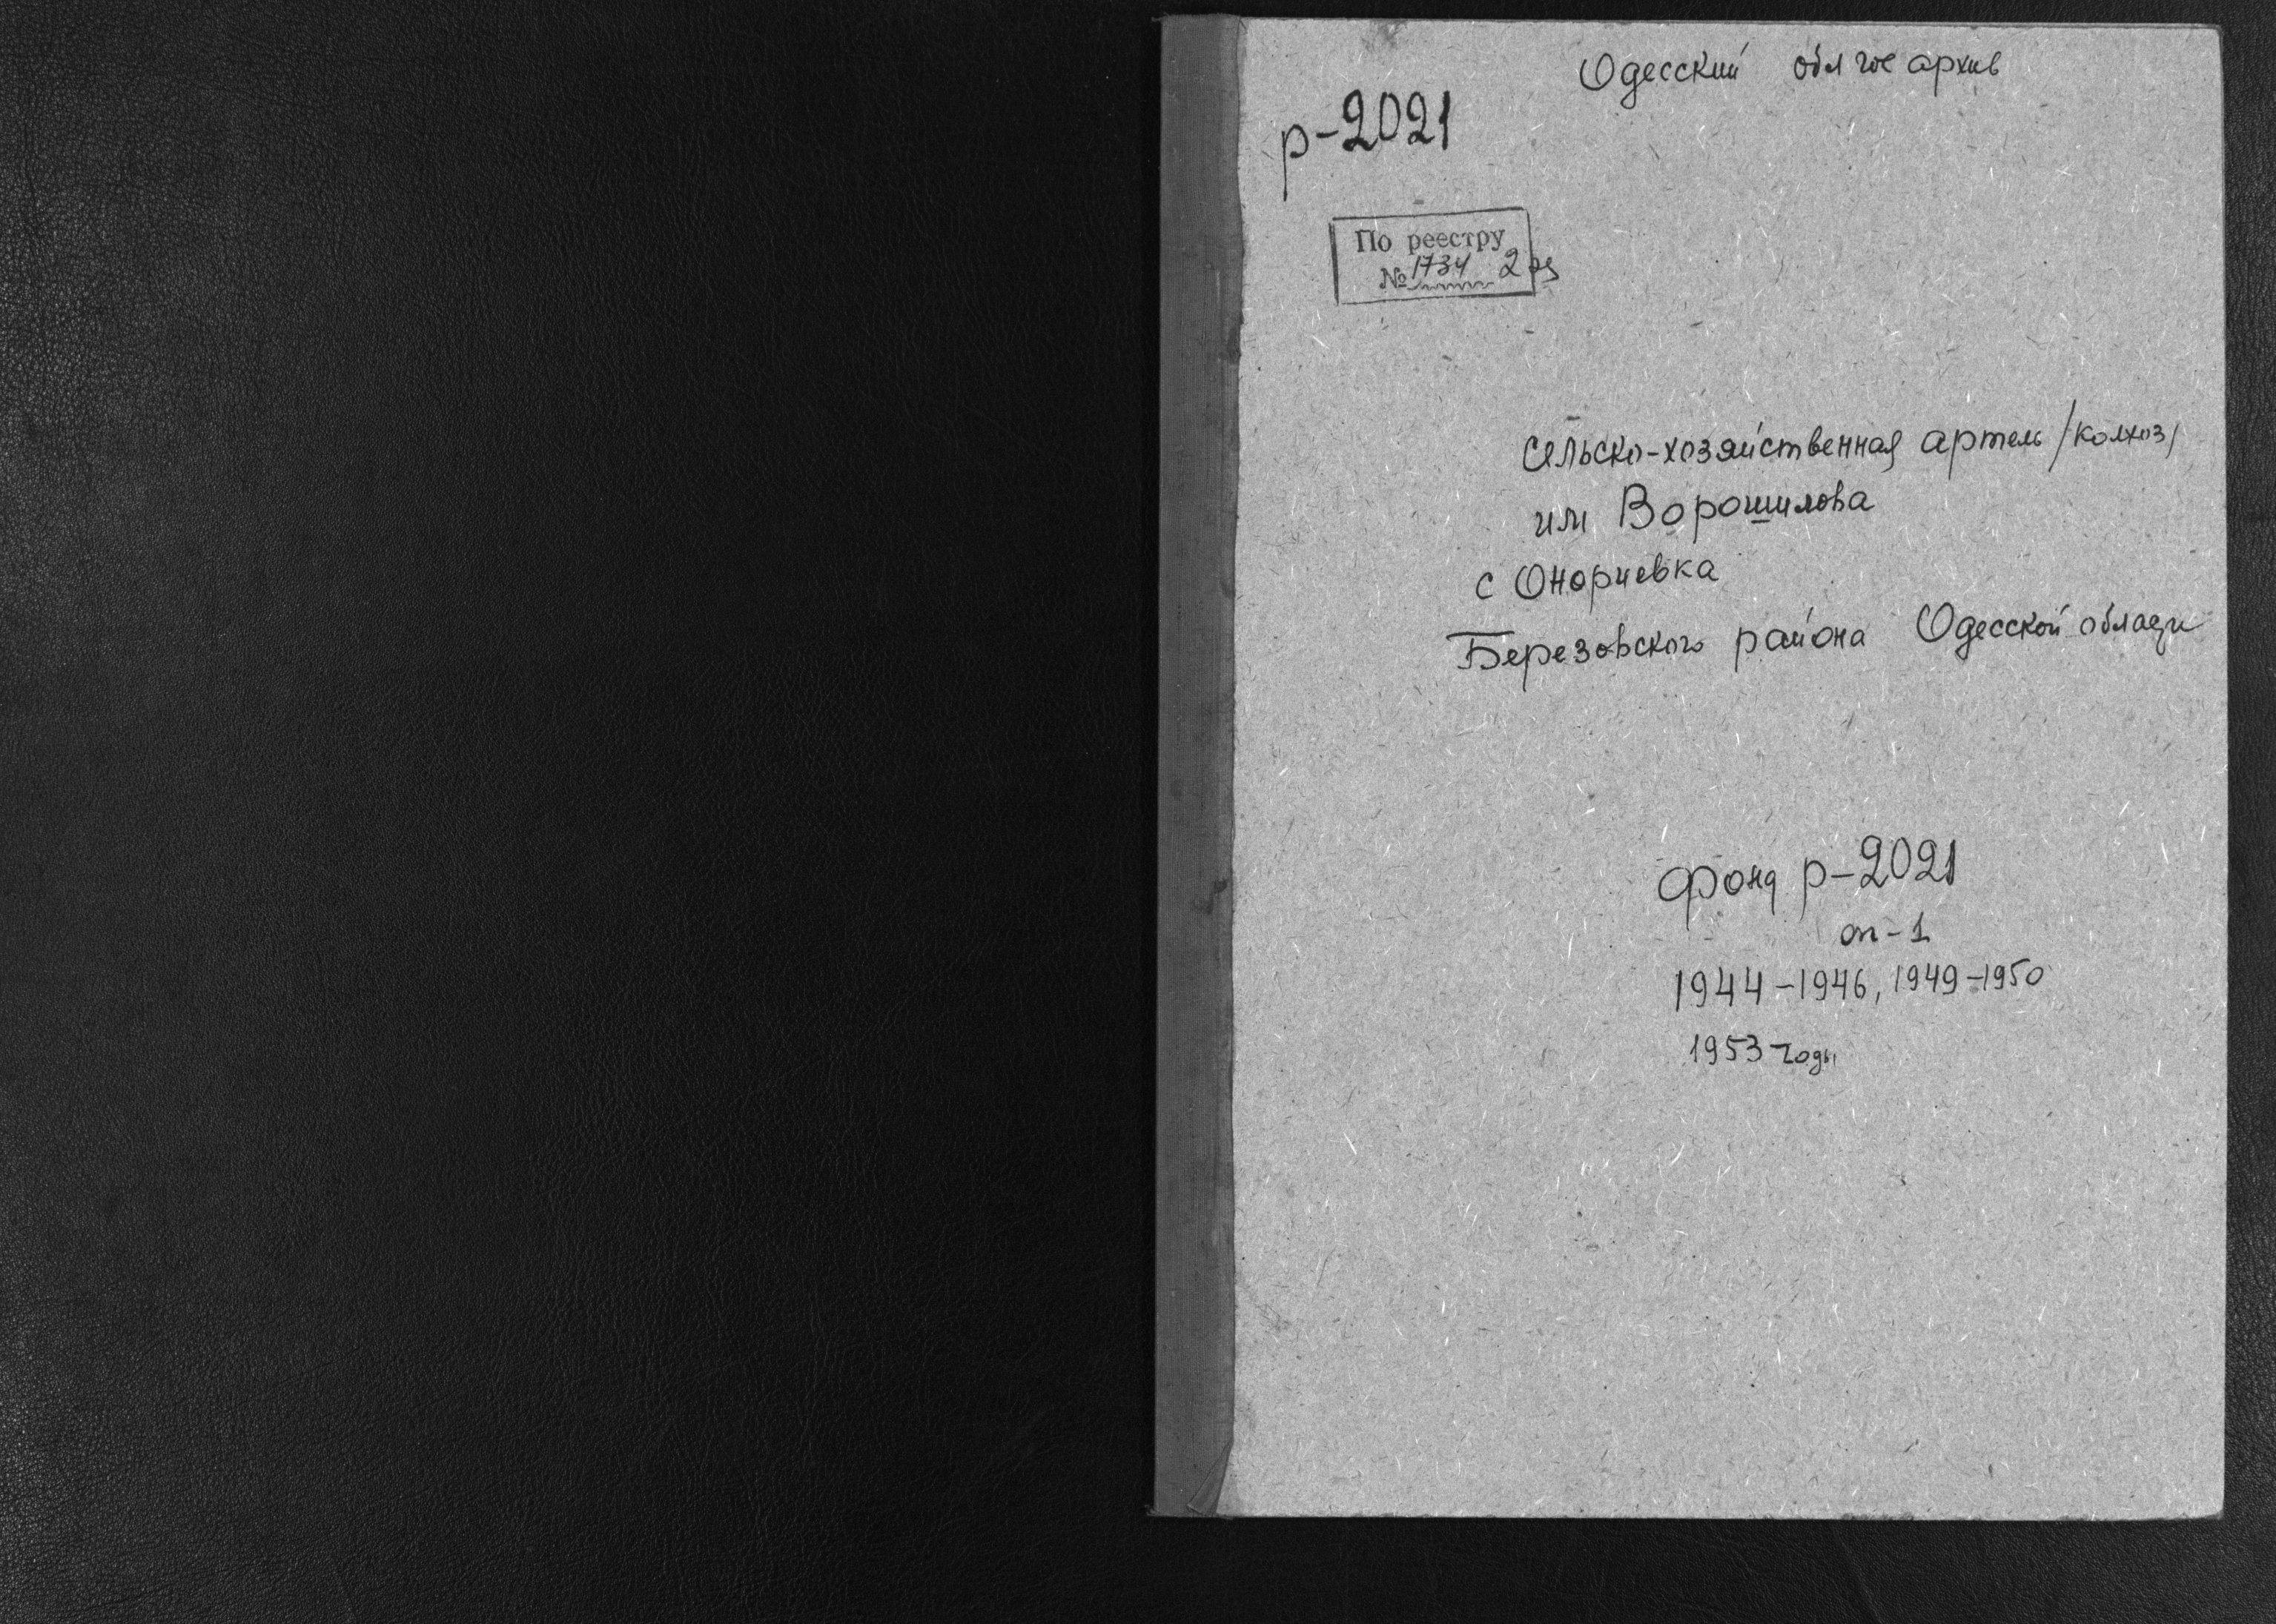 Одесский облгосархив
р-2021
По реестру
№ 1734 2 эз
Сельско-хозяйственная артель /колхоз/
им Ворошилова
с Онориевка
Березовского района Одесской области
Фонд р-2021
оп-1
1944-1946, 1949-1950
1953 годы